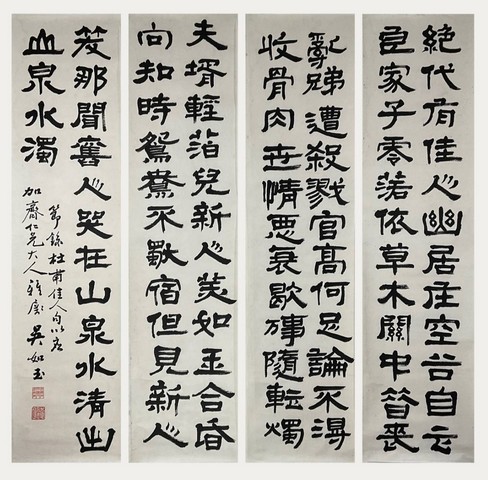 絕代有佳人幽居在空谷自云
良家子零落依草木關中昔喪
亂弟遭殺戮官高何足論不得
收骨肉世情惡衰歇万事隨轉燭
夫壻輕薄兒新人美如玉合昏
尚知時鴛鴦不獨宿但見新人
笑那聞舊人哭在山泉水清出
山泉水濁
節錄杜甫佳人句以應
加齋仁兄大人雅屬 吳如玉